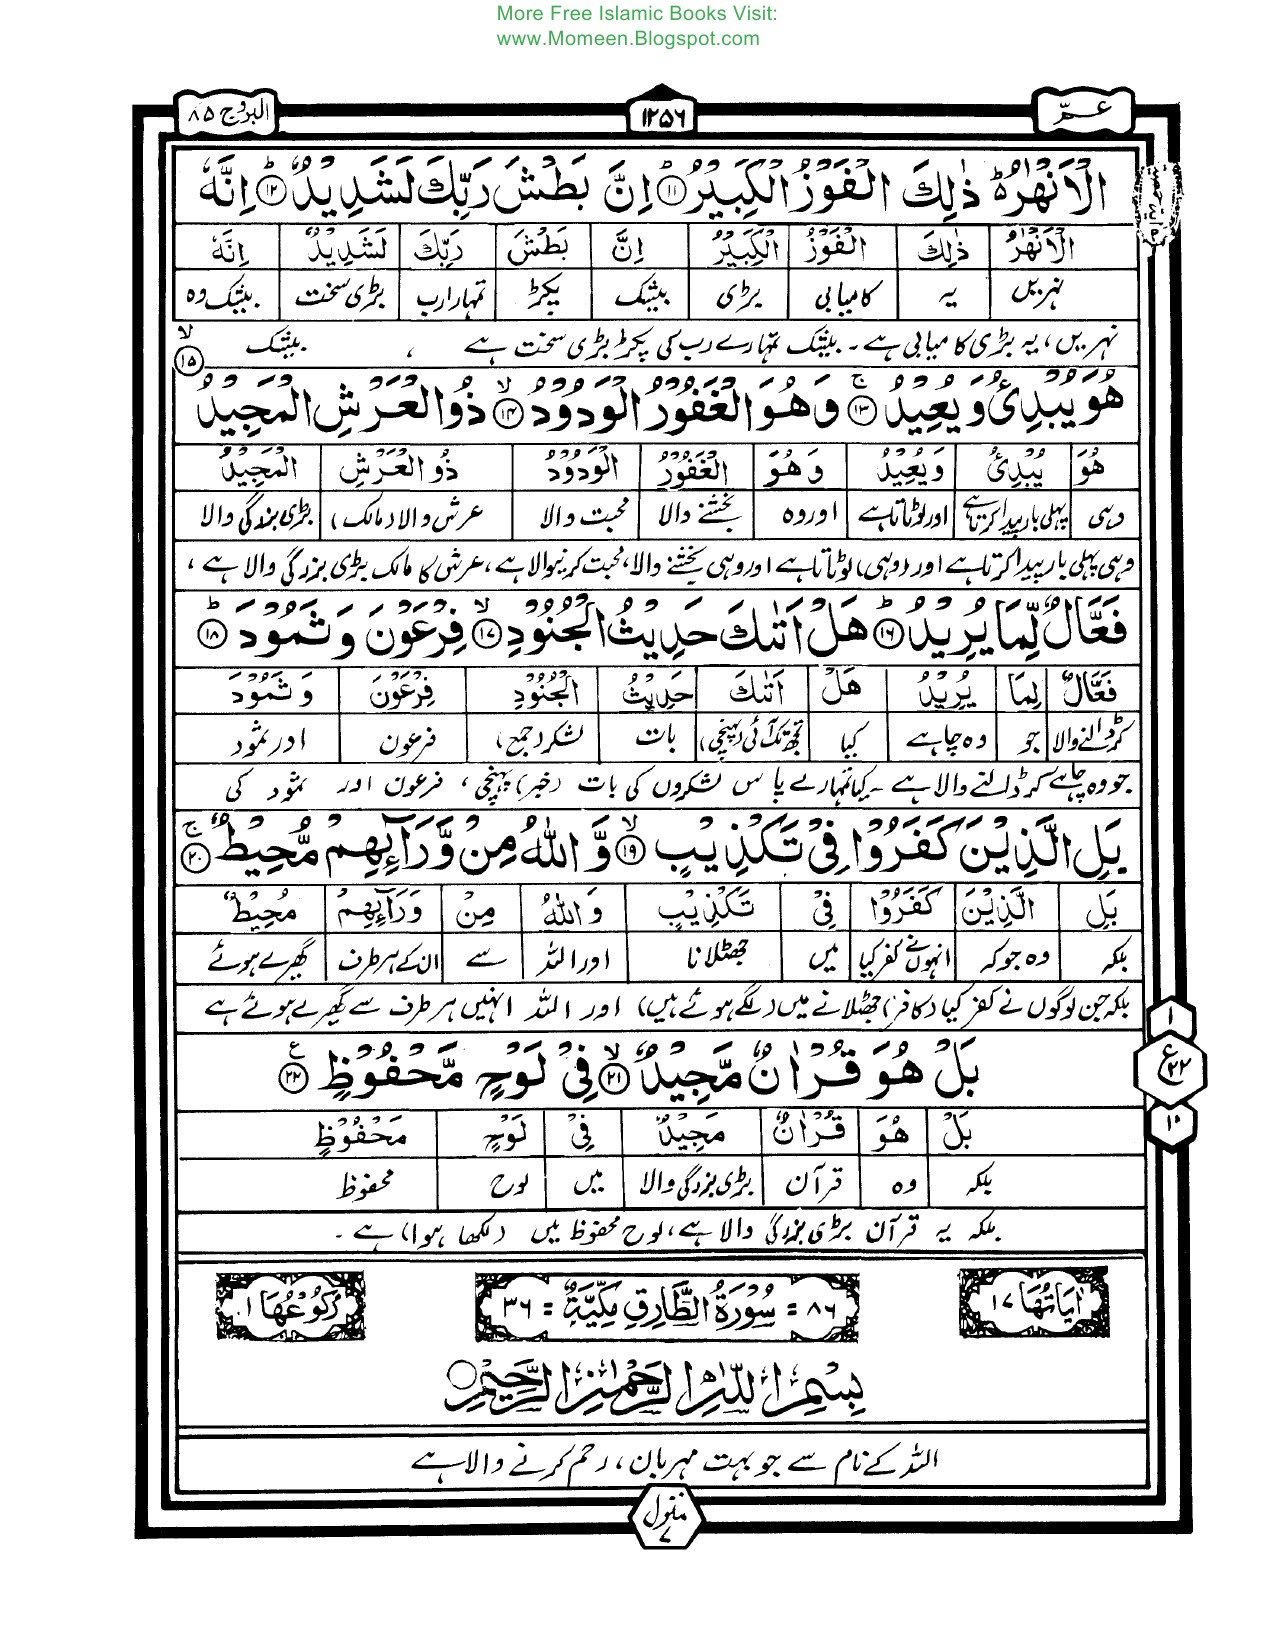 More Free Islamic Books Visit:
www.Momeen.Blogspot.com
عـمّ ١٢٥٦ البروج ٨٥
الْاَنْهٰرُ ؕ ذٰلِكَ الْفَوْزُ الْكَبِيْرُ ؕ ۝۱۱ اِنَّ بَطْشَ رَبِّكَ لَشَدِيْدٌ ؕ ۝۱۲ اِنَّهٗ
الْاَنْهٰرُ ذٰلِكَ الْفَوْزُ الْكَبِيْرُ اِنَّ بَطْشَ رَبِّكَ لَشَدِيْدٌ اِنَّهٗ
نہریں یہ کامیابی بڑی بیشک پکڑ تمہارا رب بڑی سخت بیشک وہ
نہریں، یہ بڑی کامیابی ہے۔ بیشک تمہارے رب کی پکڑ بڑی سخت ہے ، بیشک
هُوَ يُبْدِئُ وَ يُعِيْدُ ۚ ۝۱۳ وَ هُوَ الْغَفُوْرُ الْوَدُوْدُ ۙ ۝۱۴ ذُو الْعَرْشِ الْمَجِيْدُ ۙ ۝۱۵
هُوَ يُبْدِئُ وَ يُعِيْدُ وَ هُوَ الْغَفُوْرُ الْوَدُوْدُ ذُو الْعَرْشِ الْمَجِيْدُ
وہی پہلی بار پیدا کرتا ہے اور لوٹاتا ہے اور وہ بخشنے والا محبت والا عرش والا (مالک) بڑی بندگی والا
وہی پہلی بار پیدا کرتا ہے اور (وہی) لوٹاتا ہے اور وہی بخشنے والا، محبت کرنیوالا ہے، عرش کا مالک بڑی بزرگی والا ہے ،
فَعَّالٌ لِّمَا يُرِيْدُ ؕ ۝۱۶ هَلْ اَتٰىكَ حَدِيْثُ الْجُنُوْدِ ۙ ۝۱۷ فِرْعَوْنَ وَ ثَمُوْدَ ؕ ۝۱۸
فَعَّالٌ لِمَا يُرِيْدُ هَلْ اَتٰىكَ حَدِيْثُ الْجُنُوْدِ فِرْعَوْنَ وَ ثَمُوْدَ
کر ڈالنے والا جو وہ چاہے کیا تجھ تک آئی (پہنچی) بات لشکر (جمع) فرعون اور ثمود
جو وہ چاہے کر ڈالنے والا ہے۔ کیا تمہارے پاس لشکروں کی بات (خبر) پہنچی، فرعون اور ثمود کی
بَلِ الَّذِيْنَ كَفَرُوْا فِيْ تَكْذِيْبٍ ۙ ۝۱۹ وَّ اللّٰهُ مِنْ وَّرَآئِهِمْ مُّحِيْطٌ ۚ ۝۲۰
بَلِ الَّذِيْنَ كَفَرُوْا فِيْ تَكْذِيْبٍ وَ اللّٰهُ مِنْ وَرَآئِهِمْ مُحِيْطٌ
بلکہ وہ جو کہ انہوں نے کفر کیا میں جھٹلانا اور اللہ سے ان کے ہر طرف گھیرے ہوئے
بلکہ جن لوگوں نے کفر کیا (کافر) جھٹلانے میں (لگے ہوئے ہیں) اور اللہ انہیں ہر طرف سے گھیرے ہوئے ہے
بَلْ هُوَ قُرْاٰنٌ مَّجِيْدٌ ۙ ۝۲۱ فِيْ لَوْحٍ مَّحْفُوْظٍ ۝۲۲ ع
بَلْ هُوَ قُرْاٰنٌ مَجِيْدٌ فِيْ لَوْحٍ مَحْفُوْظٍ
بلکہ وہ قرآن بڑی بزرگی والا میں لوح محفوظ
بلکہ یہ قرآن بڑی بزرگی والا ہے، لوح محفوظ میں (لکھا ہوا) ہے۔
١
ع ٢٢
١٠
اٰيَاتُهَا ١٧ ٨٦ = سُوْرَةُ الطَّارِقِ مَكِّيَّةٌ = ٣٦ رُكُوْعُهَا ١
بِسْمِ اللّٰهِ الرَّحْمٰنِ الرَّحِيْمِ
اللہ کے نام سے جو بہت مہربان، رحم کرنے والا ہے
منزل
٧